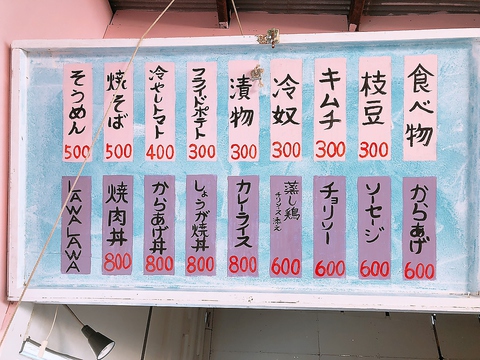 食べ物
枝豆
300
キムチ
300
冷奴
300
漬物
300
フライドポテト
300
冷やしトマト
400
焼そば
500
そうめん
500
からあげ
600
ソーセージ
600
チョリソー
600
蒸し鶏
600
カレーライス
800
しょうが焼丼
800
からあげ丼
800
焼肉丼
800
LAWALAWA